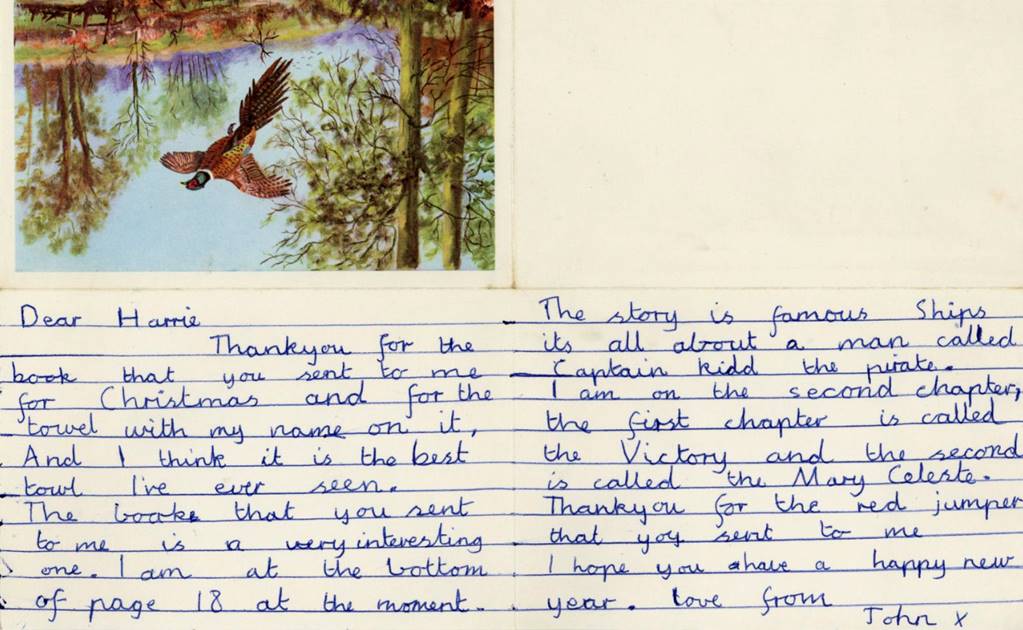 Dear Harrie
Thankyou for the
book that you sent to me
for Christmas and for the
towel with my name on it,
And I think it is the best
towl I've ever seen.
The book that you sent
to me is a very interesting
one. I am at the bottom
of page 18 at the moment.
The story is famous Ships
its all about a man called
Captain kidd the pirate.
I am on the second chapter,
the first chapter is called
the Victory and the second
is called the Mary Celeste.
Thankyou for the red jumper
that you sent to me
I hope you have a happy new
year. love from
John x